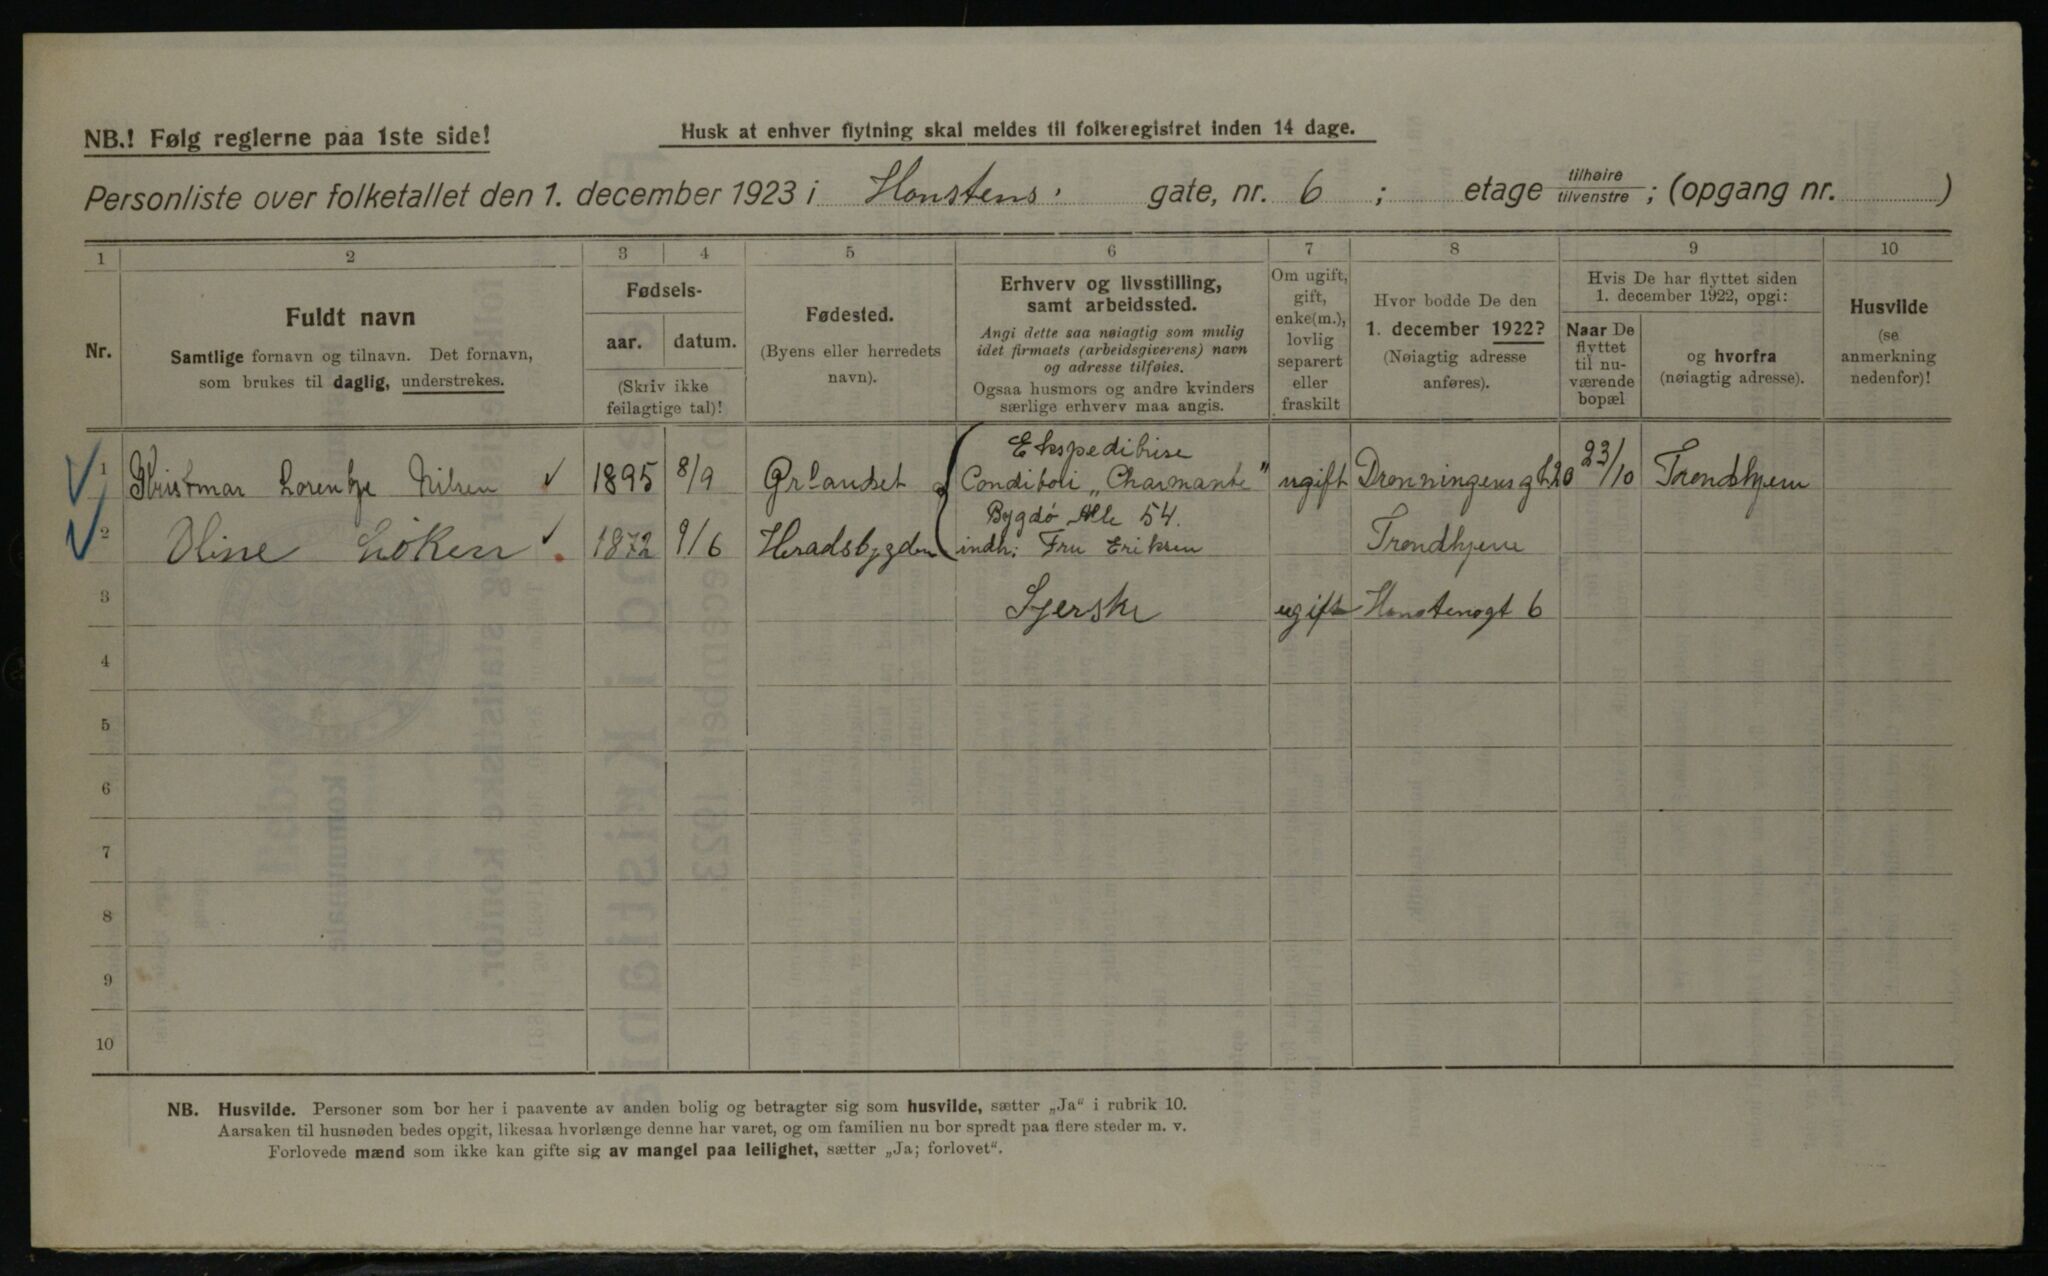 NB.! Følg reglerne paa 1ste side!
Husk at enhver flytning skal meldes til folkeregistret inden 14 dage.
Personliste over folketallet den 1. december 1923 i Honstens gate, nr. 6 ; etage tilhøire tilvenstre ; (opgang nr. )
1 2 3 4 5 6 7 8 9 10
Nr.
Fuldt navn
Samtlige fornavn og tilnavn. Det fornavn,
som brukes til daglig, understrekes.
Fødsels-
aar. datum.
(Skriv ikke
feilagtige tal)!
Fødested.
(Byens eller herredets
navn).
Erhverv og livsstilling,
samt arbeidssted.
Angi dette saa nøiagtig som mulig
idet firmaets (arbeidsgiverens) navn
og adresse tilføies.
Ogsaa husmors og andre kvinders
særlige erhverv maa angis.
Om ugift,
gift,
enke(m.),
lovlig
separert
eller
fraskilt
Hvor bodde De den
1. december 1922?
(Nøiagtig adresse
anføres).
Hvis De har flyttet siden
1. december 1922, opgi:
Naar De
flyttet
til nu-
værende
bopæl
og hvorfra
(nøiagtig adresse).
Husvilde
(se
anmerkning
nedenfor)!
1 Nilsen 1895 8/9 Ørlandet Ekspeditrise
Conditori „Charmante" ugift Dronningensgt 20 23/10 Trondhjem
Bygdø Alle 54.
2 Oline Løken 1872 9/6 Heradsbygden indh: Fru Eriksen Trondhjem
3 Syerske ugift Honstensgt 6
4
5
6
7
8
9
10
NB. Husvilde. Personer som bor her i paavente av anden bolig og betragter sig som husvilde, sætter „Ja" i rubrik 10.
Aarsaken til husnøden bedes opgit, likesaa hvorlænge denne har varet, og om familien nu bor spredt paa flere steder m. v.
Forlovede mænd som ikke kan gifte sig av mangel paa leilighet, sætter „Ja; forlovet".